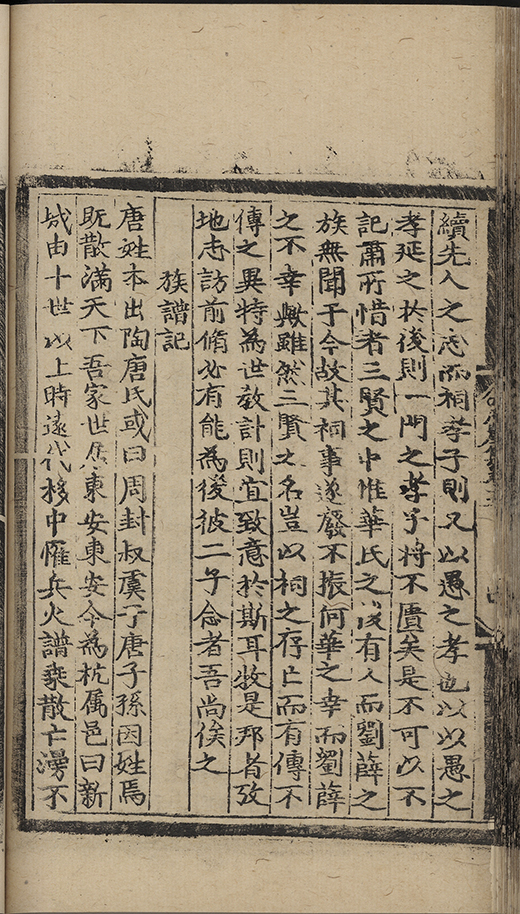 續先人之志而祠孝子則又以愚之孝也以以愚之
孝延之於後則一門之孝子將不匱矣是不可以不
記爾所惜者三賢之中惟華氏之後有人而劉薛之
族無聞于今故其祠事遂廢不振何華之幸而劉薛
之不幸歟雖然三賢之名豈以祠之存亡而有傳不
傳之異特為世教計則宜致意於斯耳牧是邦者攷
地志訪前脩必有能為後彼二子念者吾尚俟之
族譜記
唐姓本出陶唐氏或曰周封叔虞于唐子孫因姓焉
既散滿天下吾家世居東安東安今為杭属邑曰新
城由十世以上時遠代移中罹兵火譜乗散亡漫不